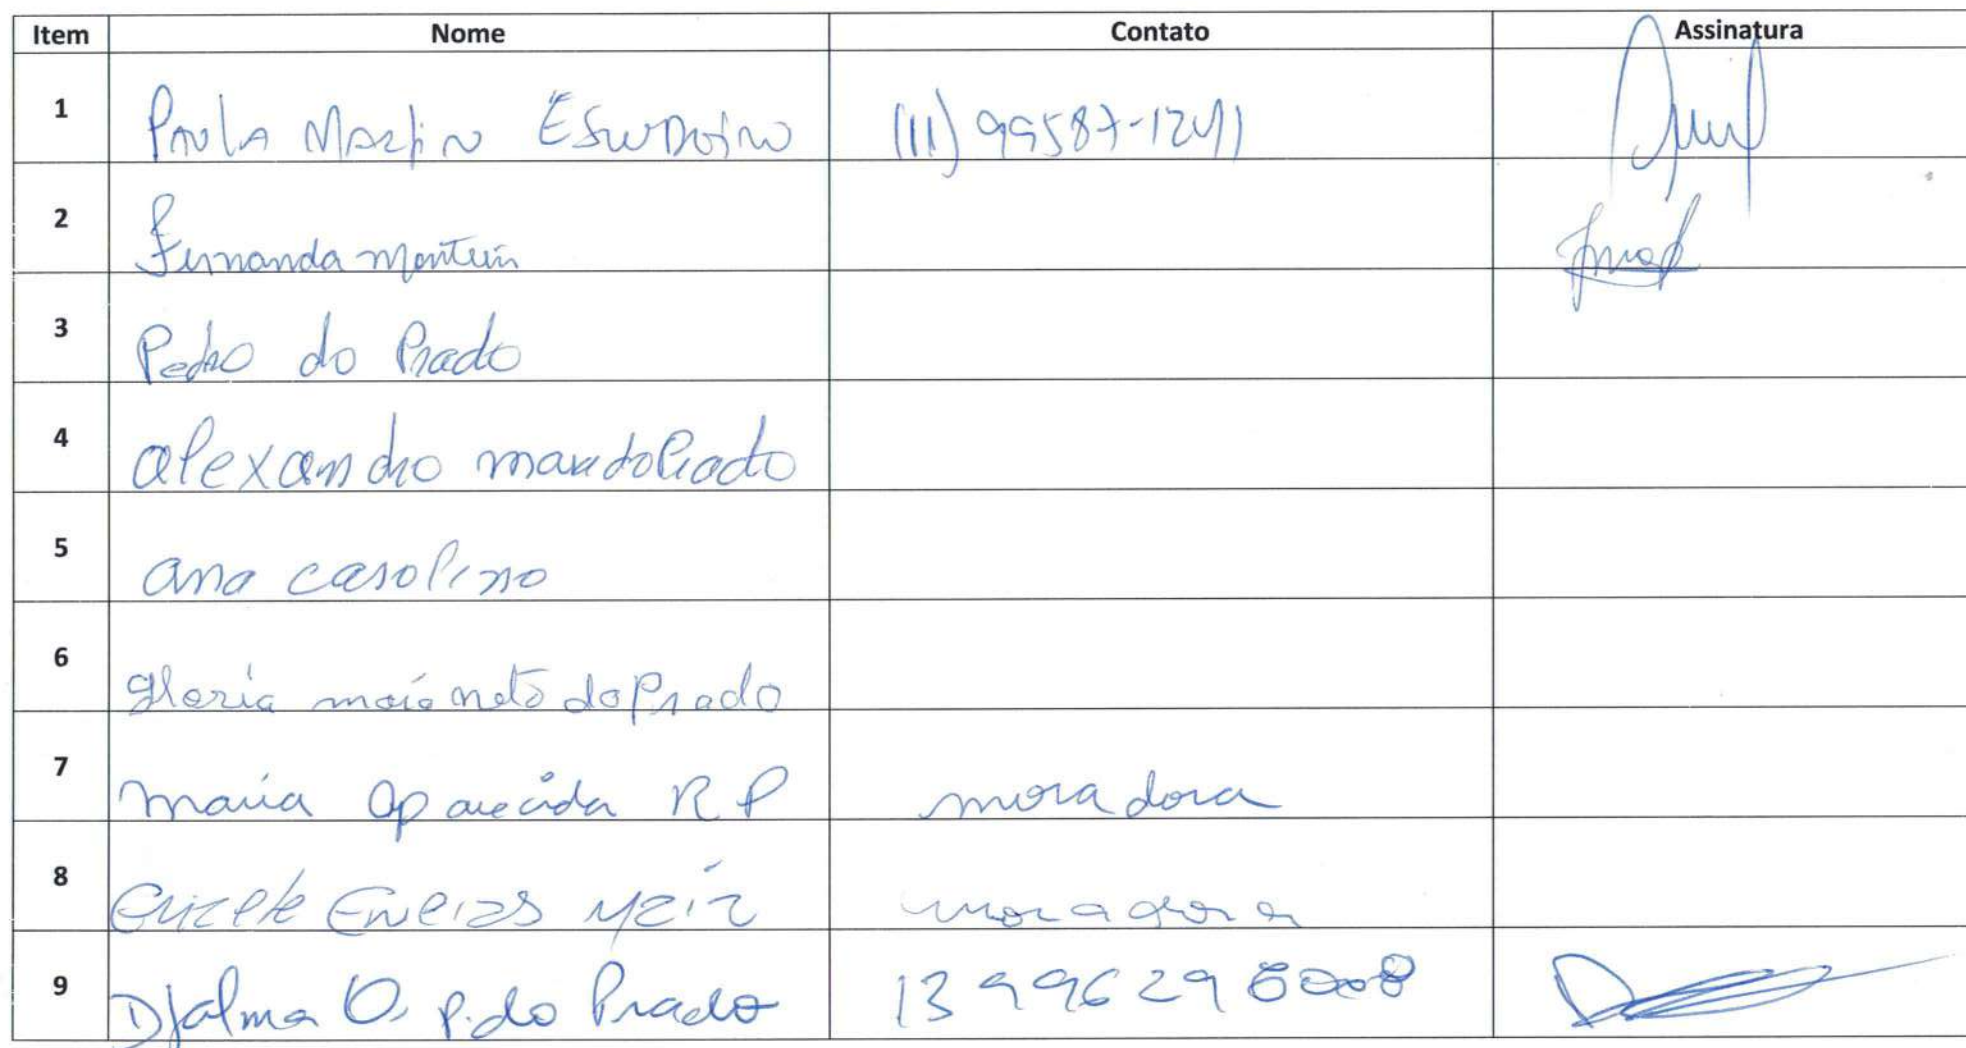 Item Nome Contato Assinatura
1 Paula Martin Escudeiro (11) 99587-1241
2 Fernanda Monteiro
3 Pedro do Prado
4 alexandro maia do Prado
5 ana carolino
6 gloria maia neto do Prado
7 maria Aparecida R P moradora
8 moradora
9 Djalma O. P. do Prado 13 99629